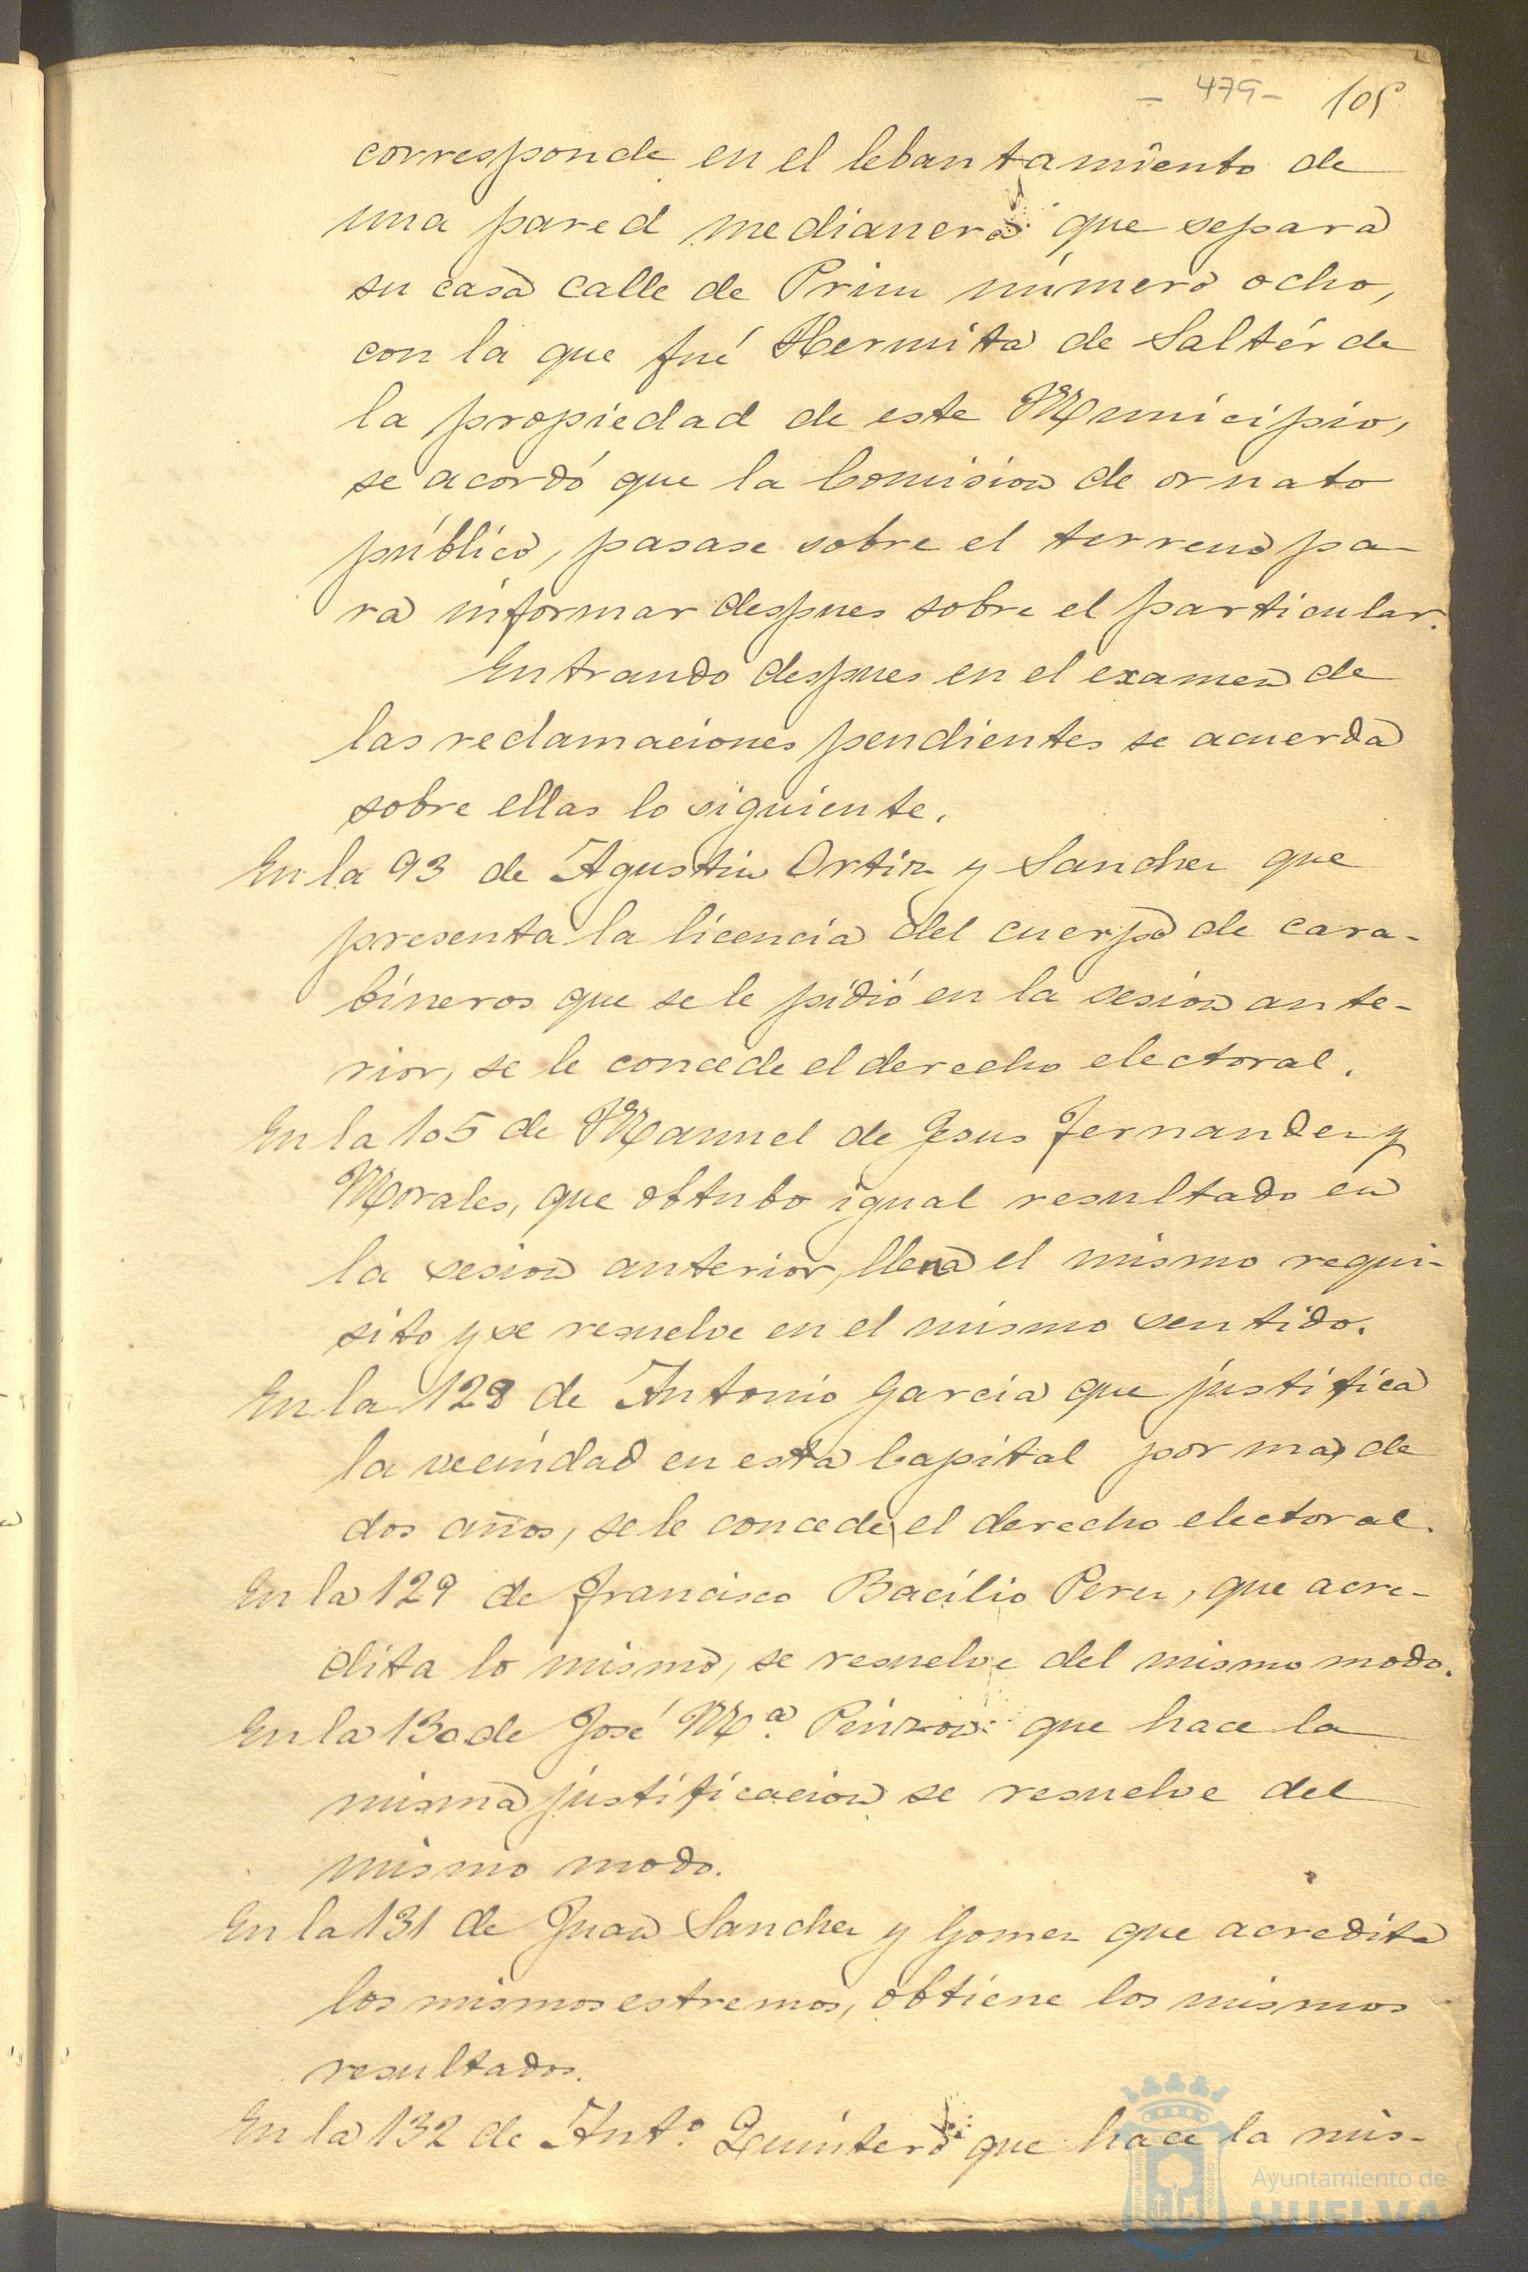 - 479 - 105
corresponde en el lebantamiento de
una pared medianera que separa
su casa calle de Prim número ocho,
con la que fué Hermita de Saltés de
la propiedad de este Municipio,
se acordó que la Comision de ornato
público, pasase sobre el terreno pa-
ra informar despues sobre el particular.
Entrando despues en el examen de
las reclamaciones pendientes se acuerda
sobre ellas lo siguiente.
En la 93 de Agustin Ortiz y Sanchez que
presenta la licencia del cuerpo de cara-
bineros que se le pidió en la sesion ante-
rior, se le concede el derecho electoral.
En la 105 de Manuel de Jesus Fernandez y
Morales, que obtubo igual resultado en
la sesion anterior, llena el mismo requi-
sito y se resuelve en el mismo sentido.
En la 128 de Antonio Garcia que justifica
la vecindad en esta Capital por mas de
dos años, se le concede el derecho electoral.
En la 129 de Francisco Bacilio Perez, que acre-
dita lo mismo, se resuelve del mismo modo.
En la 130 de José Mª. Pinzon que hace la
misma justificacion se resuelve del
mismo modo.
En la 131 de Juan Sanchez y Gomez que acredita
los mismos estremos, obtiene los mismos
resultados.
En la 132 de Antº Quintero que hace la mis-
Ayuntamiento de
HUELVA